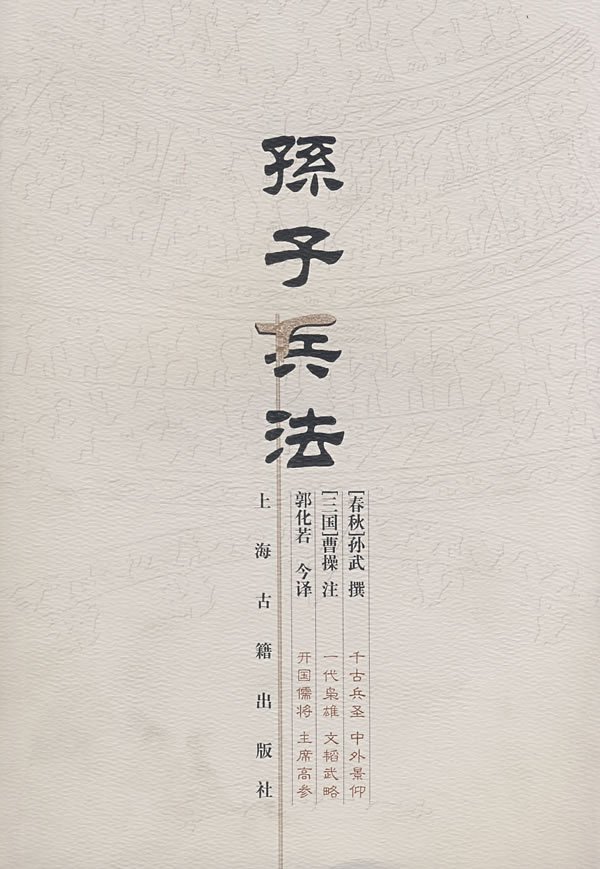 孫子兵法
[春秋]孙武 撰 千古兵圣 中外景仰
[三国]曹操 注 一代枭雄 文韬武略
郭化若 今译 开国儒将 主席高参
上海古籍出版社